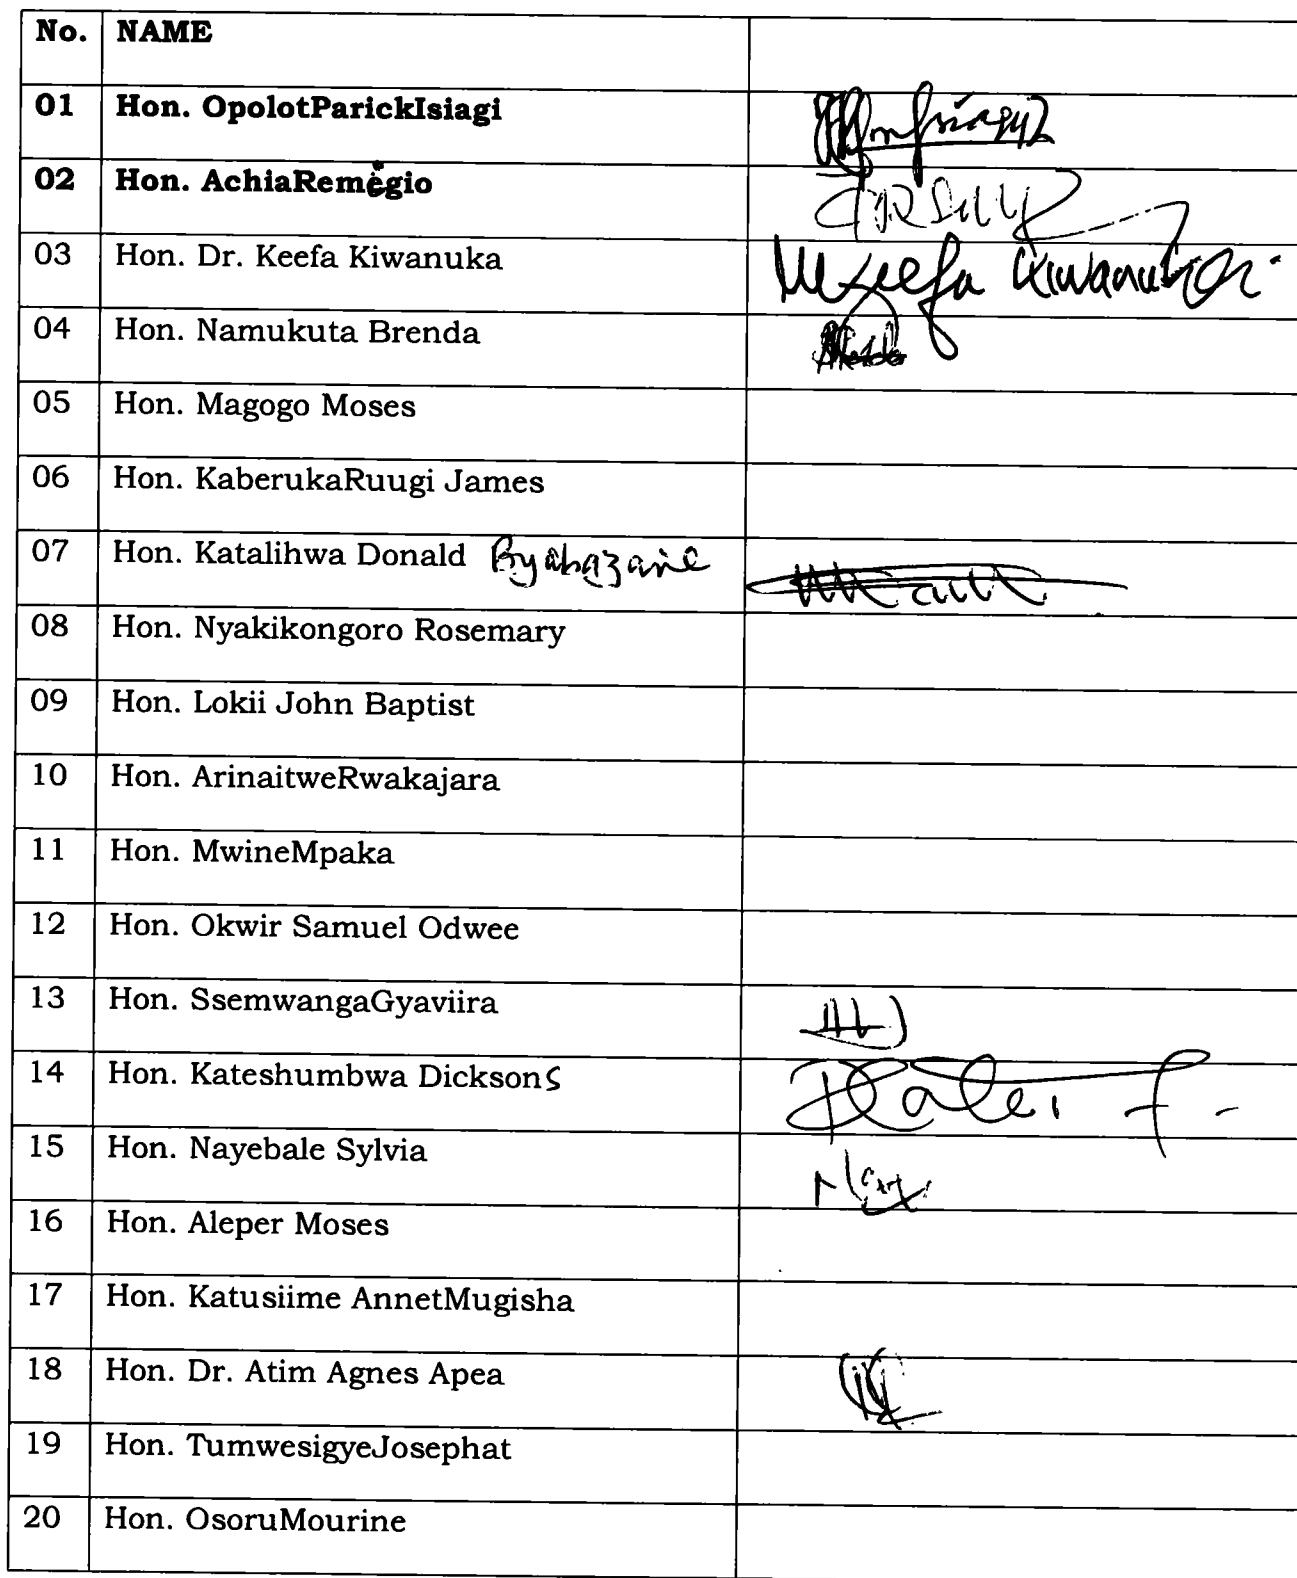 No. NAME
01 Hon. OpolotParickIsiagi
02 Hon. AchiaRemegio
03 Hon. Dr. Keefa Kiwanuka Keefa Kiwanuka
04 Hon. Namukuta Brenda
05 Hon. Magogo Moses
06 Hon. KaberukaRuugi James
07 Hon. Katalihwa Donald Byabazaire
08 Hon. Nyakikongoro Rosemary
09 Hon. Lokii John Baptist
10 Hon. ArinaitweRwakajara
11 Hon. MwineMpaka
12 Hon. Okwir Samuel Odwee
13 Hon. SsemwangaGyaviira
14 Hon. Kateshumbwa Dicksons
15 Hon. Nayebale Sylvia
16 Hon. Aleper Moses
17 Hon. Katusiime AnnetMugisha
18 Hon. Dr. Atim Agnes Apea
19 Hon. TumwesigyeJosephat
20 Hon. OsoruMourine